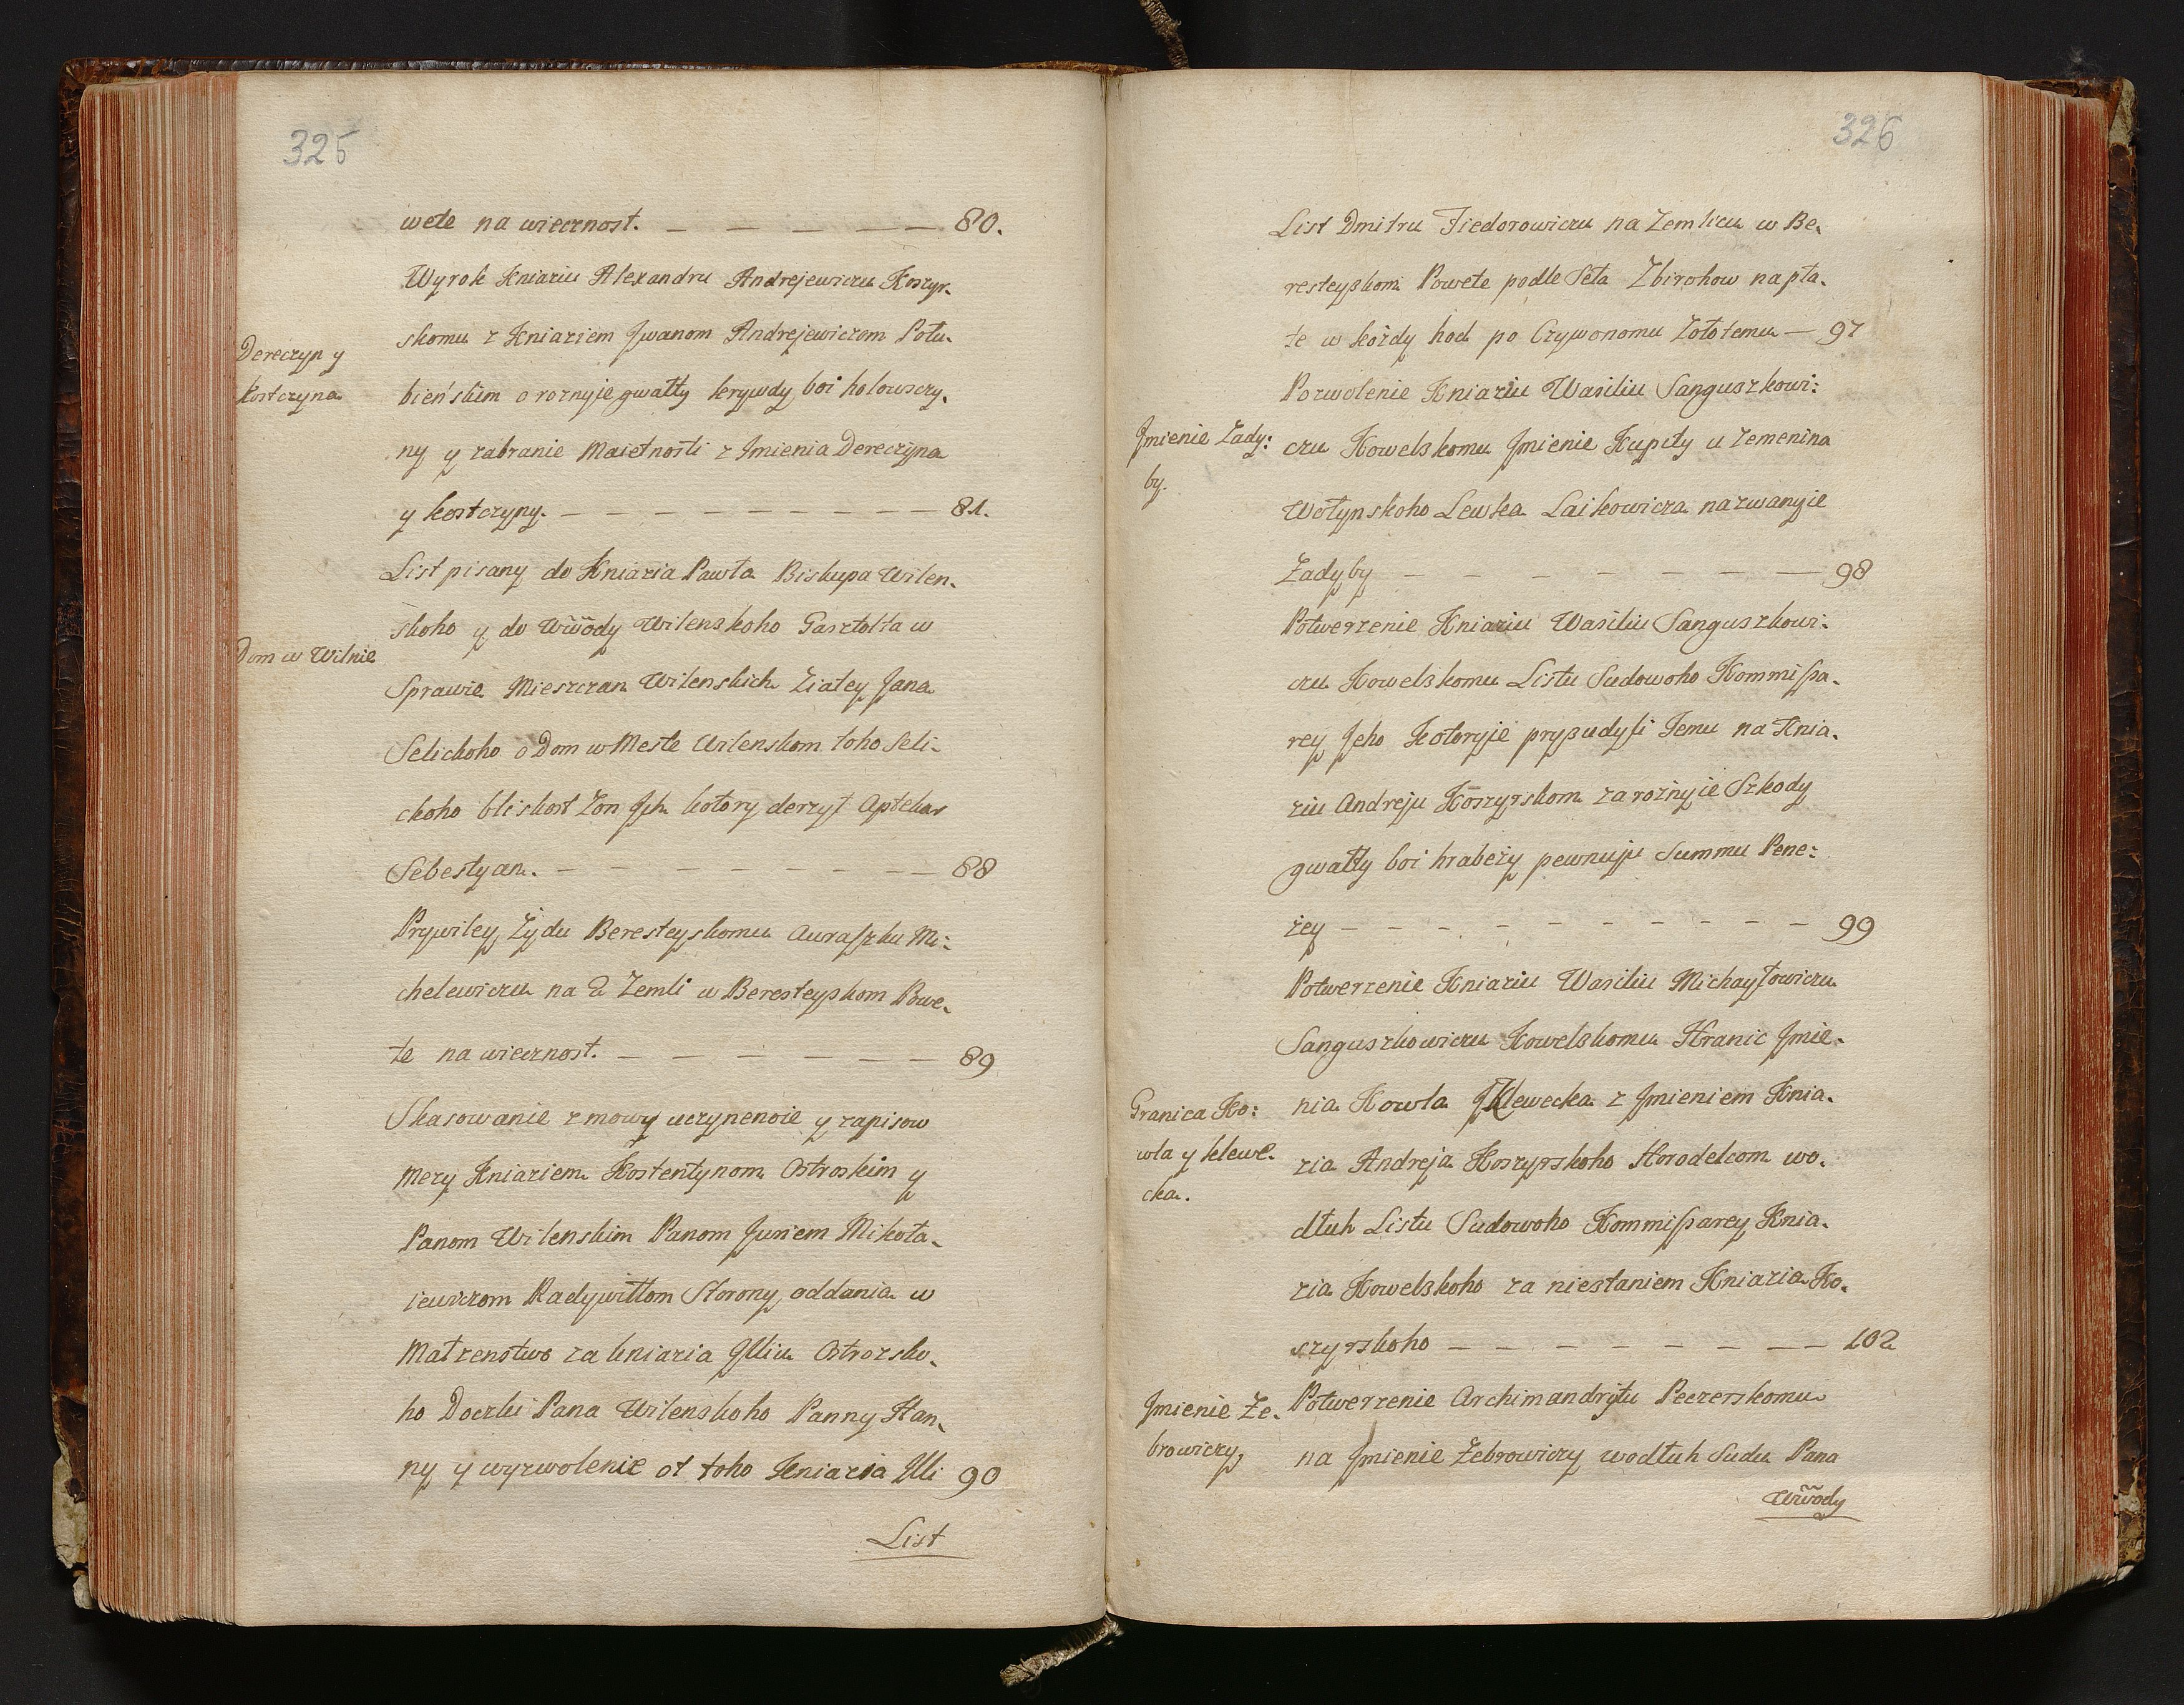 325
wete na wiecznost. — — — — — — 80.
Wyrok Kniaziu Alexandru Andrejewiczu Koszyr-
skomu z Kniaziem Jwanom Andrejewiczem Połu-
Dereczyn y
Kostczyna
bieńskim o roznyje gwałty krywdy boi hołowszczy-
ny y zabranie Maietnosti z Jmienia Dereczyna
y kostczyny. — — — — — — — — — 81.
List pisany do Kniazia Pawła Biskupa Wilen-
skoho y do Wwody Wilenskoho Gasztołta w
Dom w Wilnie
Sprawie Mieszczan Wilenskich Ziatey Jana
Selickoho o Dom w Meste Wilenskom toho Seli-
ckoho bliskost Zon Jch kotory derzyt Aptekar
Sebestyan. — — — — — — — — — 88
Prywiley Żydu Beresteyskomu Awraszku Mi:
chelewiczu na 2 Zemli w Beresteyskom Powe-
te na wiecznost. — — — — — — — 89
Skasowanie zmowy uczynenoie y zapisow
mezy Kniaziem Kostentynom Ostroskim y
Panom Wilenskim Panom Juriem Mikoła-
iewiczom Radywiłłom Storony oddania w
Małzenstwo za kniazia Jlliu Ostrozsko-
ho Doczki Pana Wilenskoho Panny Han-
ny y wyzwolenie ot toho Kniazia Jlli 90
List
326
List Dmitru Fiedorowiczu na Zemlicu w Be-
resteyskom Powete podle Seła Zbirohow na pła-
te w kożdy hod po Czywonomu Zołotemu — 97
Pozwolenie Kniaziu Wasiliu Sanguszkowi:
Jmienie Zady:
by.
czu Kowelskomu Jmienie Kupity u Zemenina
Wołynskoho Lewka Laikowicza nazwanyie
Zadyby — — — — — — — — 98
Potwerzenie Kniaziu Wasiliu Sanguszkowi-
czu Kowelskomu Listu Sudowoho Kommissa-
rey Jeho Kotoryie prysudyli Jemu na Knia-
ziu Andreju Koszyrskom za rożnyie Szkody
gwałty boi hrabeży pewnuju Summu Pene:
żey — — — — — — — — — — 99
Potwerzenie Kniaziu Wasiliu Michayłowiczu
Sanguszkowiczu Kowelskomu Hranic Jmie-
Granica Ko:
wla y klewe-
cka.
nia Kowla y Klewecka z Jmieniem Knia-
zia Andreja Koszyrskoho Horodelcom wo-
dłuh Listu Sudowoho Kommissarey Knia-
zia Kowelskoho za niestaniem Kniazia Ko-
szyrskoho — — — — — — — — 102
Jmienie Że-
browiczy
Potwerzenie Archimandrytu Peczerskomu
na Jmienie Żebrowiczy wodłuh Sudu Pana
Wwody